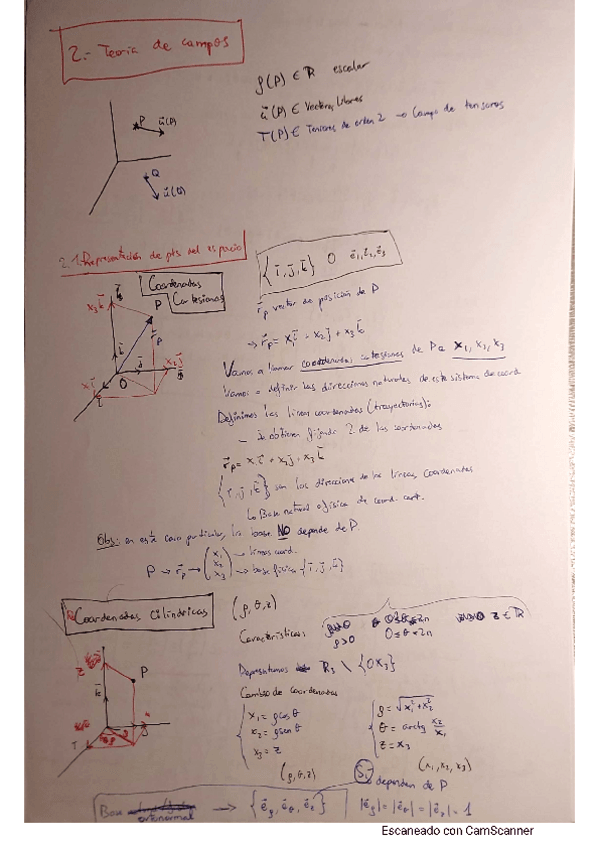 2.- Teoría de campos
ρ(P) ∈ ℝ escalar
u⃗(P) ∈ Vectores libres
T(P) ∈ Tensores de orden 2 → Campo de tensores
P u⃗(P)
Q
u⃗(Q)
2.1. Representación de pts del espacio
{i⃗, j⃗, k⃗} O e⃗₁, e⃗₂, e⃗₃
Coordenadas
Cartesianas
x₃k⃗
P
k⃗
r⃗p
j⃗
x₂j⃗
O
x₁i⃗
r⃗p vector de posición de P
→ r⃗p = x₁i⃗ + x₂j⃗ + x₃k⃗
Vamos a llamar coordenadas cartesianas de P a x₁, x₂, x₃
Vamos a definir las direcciones naturales de este sistema de coord.
Definimos las líneas coordenadas (trayectorias):
- Se obtienen fijando 2 de las coordenadas
r⃗p = x₁i⃗ + x₂j⃗ + x₃k⃗
{i⃗, j⃗, k⃗} son las direcciones de las líneas coordenadas
↳ Base natural o física de coord. cart.
Obs: en este caso particular, la base NO depende de P.
P → r⃗p → (x₁ x₂ x₃) → líneas coord.
→ base física {i⃗, j⃗, k⃗}
Coordenadas Cilíndricas
(ρ, θ, z)
Características
ρ>0 0≤θ≤2π z ∈ ℝ
R₃ \ {OX₃}
Cambio de coordenadas
x₁ = ρcosθ
x₂ = ρsenθ
x₃ = z
(ρ, θ, z)
ρ = √x₁²+x₂²
θ = arctg x₂/x₁
z = x₃
(x₁, x₂, x₃)
P
k⃗
Base ortonormal → {e⃗ρ, e⃗θ, e⃗z}
Sí dependen de P
|e⃗ρ| = |e⃗θ| = |e⃗z| = 1
Escaneado con CamScanner